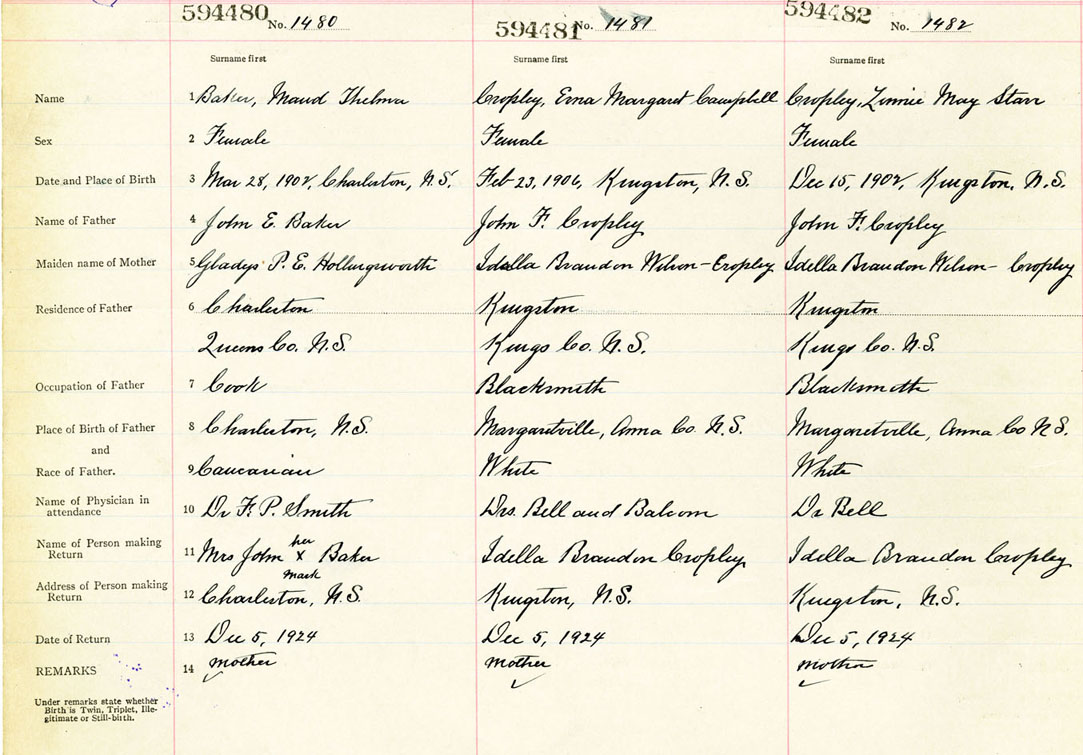 594480 No. 1480 594481 No. 1481 594482 No. 1482
Surname first Surname first Surname first
Name 1 Baker, Maud Thelma Cropley, Erna Margaret Campbell Cropley, Zinnie May Starr
Sex 2 Female Female Female
Date and Place of Birth 3 Mar 28, 1902, Charleston, N.S. Feb 23, 1906, Kingston, N.S. Dec 15, 1902, Kingston, N.S.
Name of Father 4 John E. Baker John F. Cropley John F. Cropley
Maiden name of Mother 5 Gladys P. E. Hollingsworth Idella Brandon Wilson-Cropley Idella Brandon Wilson- Cropley
Residence of Father 6 Charleston Kingston Kingston
Queens Co. N.S. Kings Co. N.S. Kings Co. N.S.
Occupation of Father 7 Cook Blacksmith Blacksmith
Place of Birth of Father 8 Charleston, N.S. Margaretville, Anna Co. N.S. Margaretville, Anna Co N.S.
and
Race of Father. 9 Caucasian White White
Name of Physician in
attendance 10 Dr F. P. Smith Drs. Bell and Balcom Dr Bell
Name of Person making her
Return 11 Mrs John x Baker Idella Brandon Cropley Idella Brandon Cropley
mark
Address of Person making
Return 12 Charleston, N.S. Kingston, N.S. Kingston, N.S.
Date of Return 13 Dec 5, 1924 Dec 5, 1924 Dec 5, 1924
REMARKS 14 mother mother mother
Under remarks state whether
Birth is Twin, Triplet, Ille-
gitimate or Still-birth.